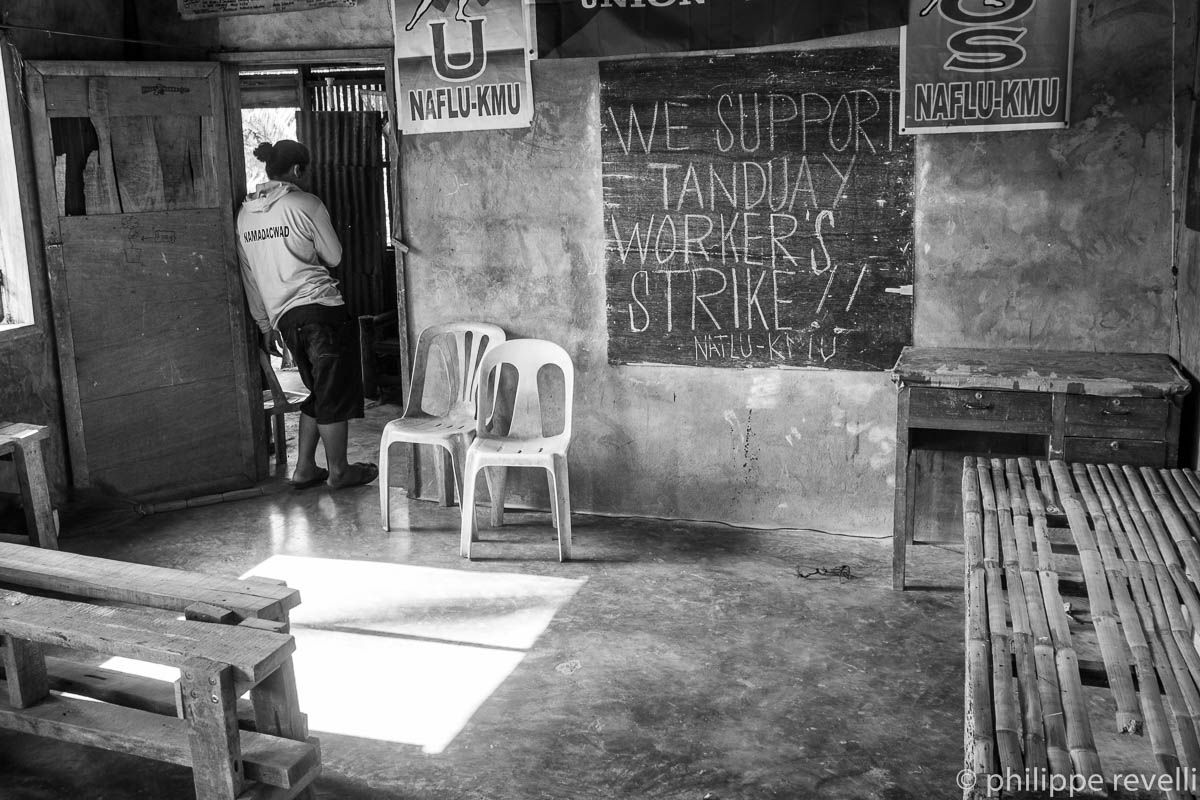 UNION
U
NAFLU-KMU
OS
NAFLU-KMU
WE SUPPORT
TANDUAY
WORKER'S
STRIKE!!
NAFLU-KMU
NAMADACWAD
© philippe revelli